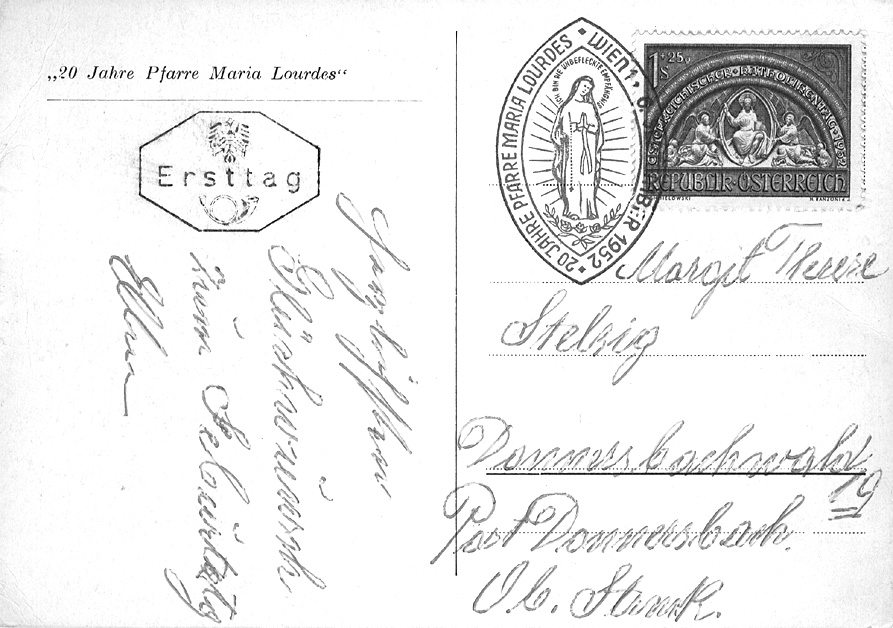 „20 Jahre Pfarre Maria Lourdes“
Ersttag
Glückwünsche
zum Geburtstag
20 JAHRE PFARRE MARIA LOURDES · WIEN 1
1952
ICH BIN DIE UNBEFLECKTE EMPFÄNGNIS
1 S + 25 g
ÖSTERREICHISCHER · KATHOLIKENTAG · 1952
REPUBLIK·ÖSTERREICH
Margit Therese
Stelzig
Donnersbachwald
19
Post Donnersbach.
Ob. Stmk.